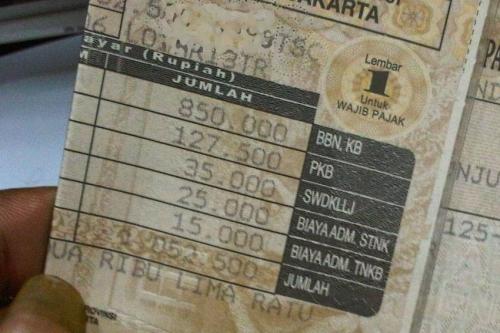 AKARTA
Lembar
1
Untuk
WAJIB PAJAK
ayar (Rupiah)
JUMLAH
850.000 BBN. KB
127.500 PKB
35.000 SWDKLLJ
25.000 BIAYA ADM. STNK
15.000 BIAYA ADM. TNKB
1.052.500 JUMLAH
UA RIBU LIMA RATU
PROVINSI
KARTA
PA
ND
NJU
125-